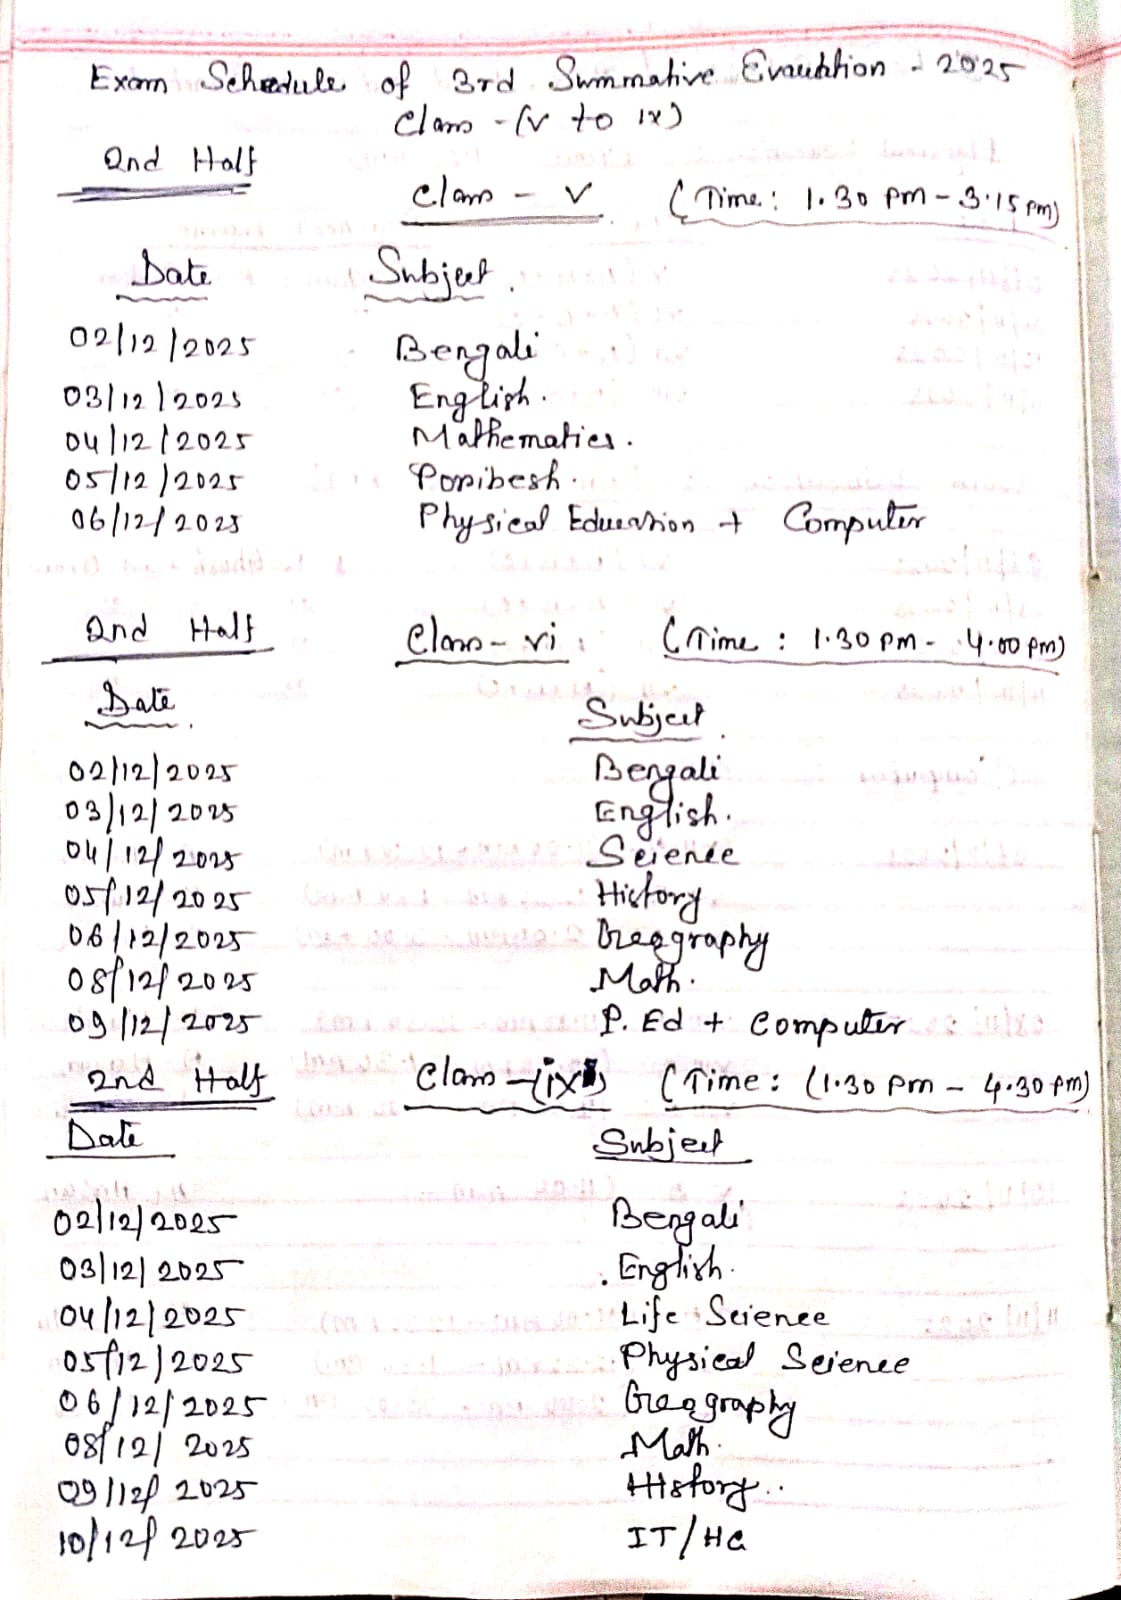 Exam Schedule of 3rd Summative Evauation - 2025
Class - (V to IX)
2nd Half
Class - V (Time: 1.30 pm - 3.15 pm)
Date Subject
02/12/2025 Bengali
03/12/2025 English.
04/12/2025 Mathematics.
05/12/2025 Poribesh.
06/12/2025 Physical Education + Computer
2nd Half Class - vi (Time: 1.30 pm - 4.00 pm)
Date Subject
02/12/2025 Bengali
03/12/2025 English.
04/12/2025 Science
05/12/2025 History
06/12/2025 Geography
08/12/2025 Math.
09/12/2025 P. Ed + Computer
2nd Half Class - (ix) (Time: (1.30 pm - 4.30 pm)
Date Subject
02/12/2025 Bengali
03/12/2025 English.
04/12/2025 Life Science
05/12/2025 Physical Science
06/12/2025 Geography
08/12/2025 Math.
09/12/2025 History..
10/12/2025 IT/HC